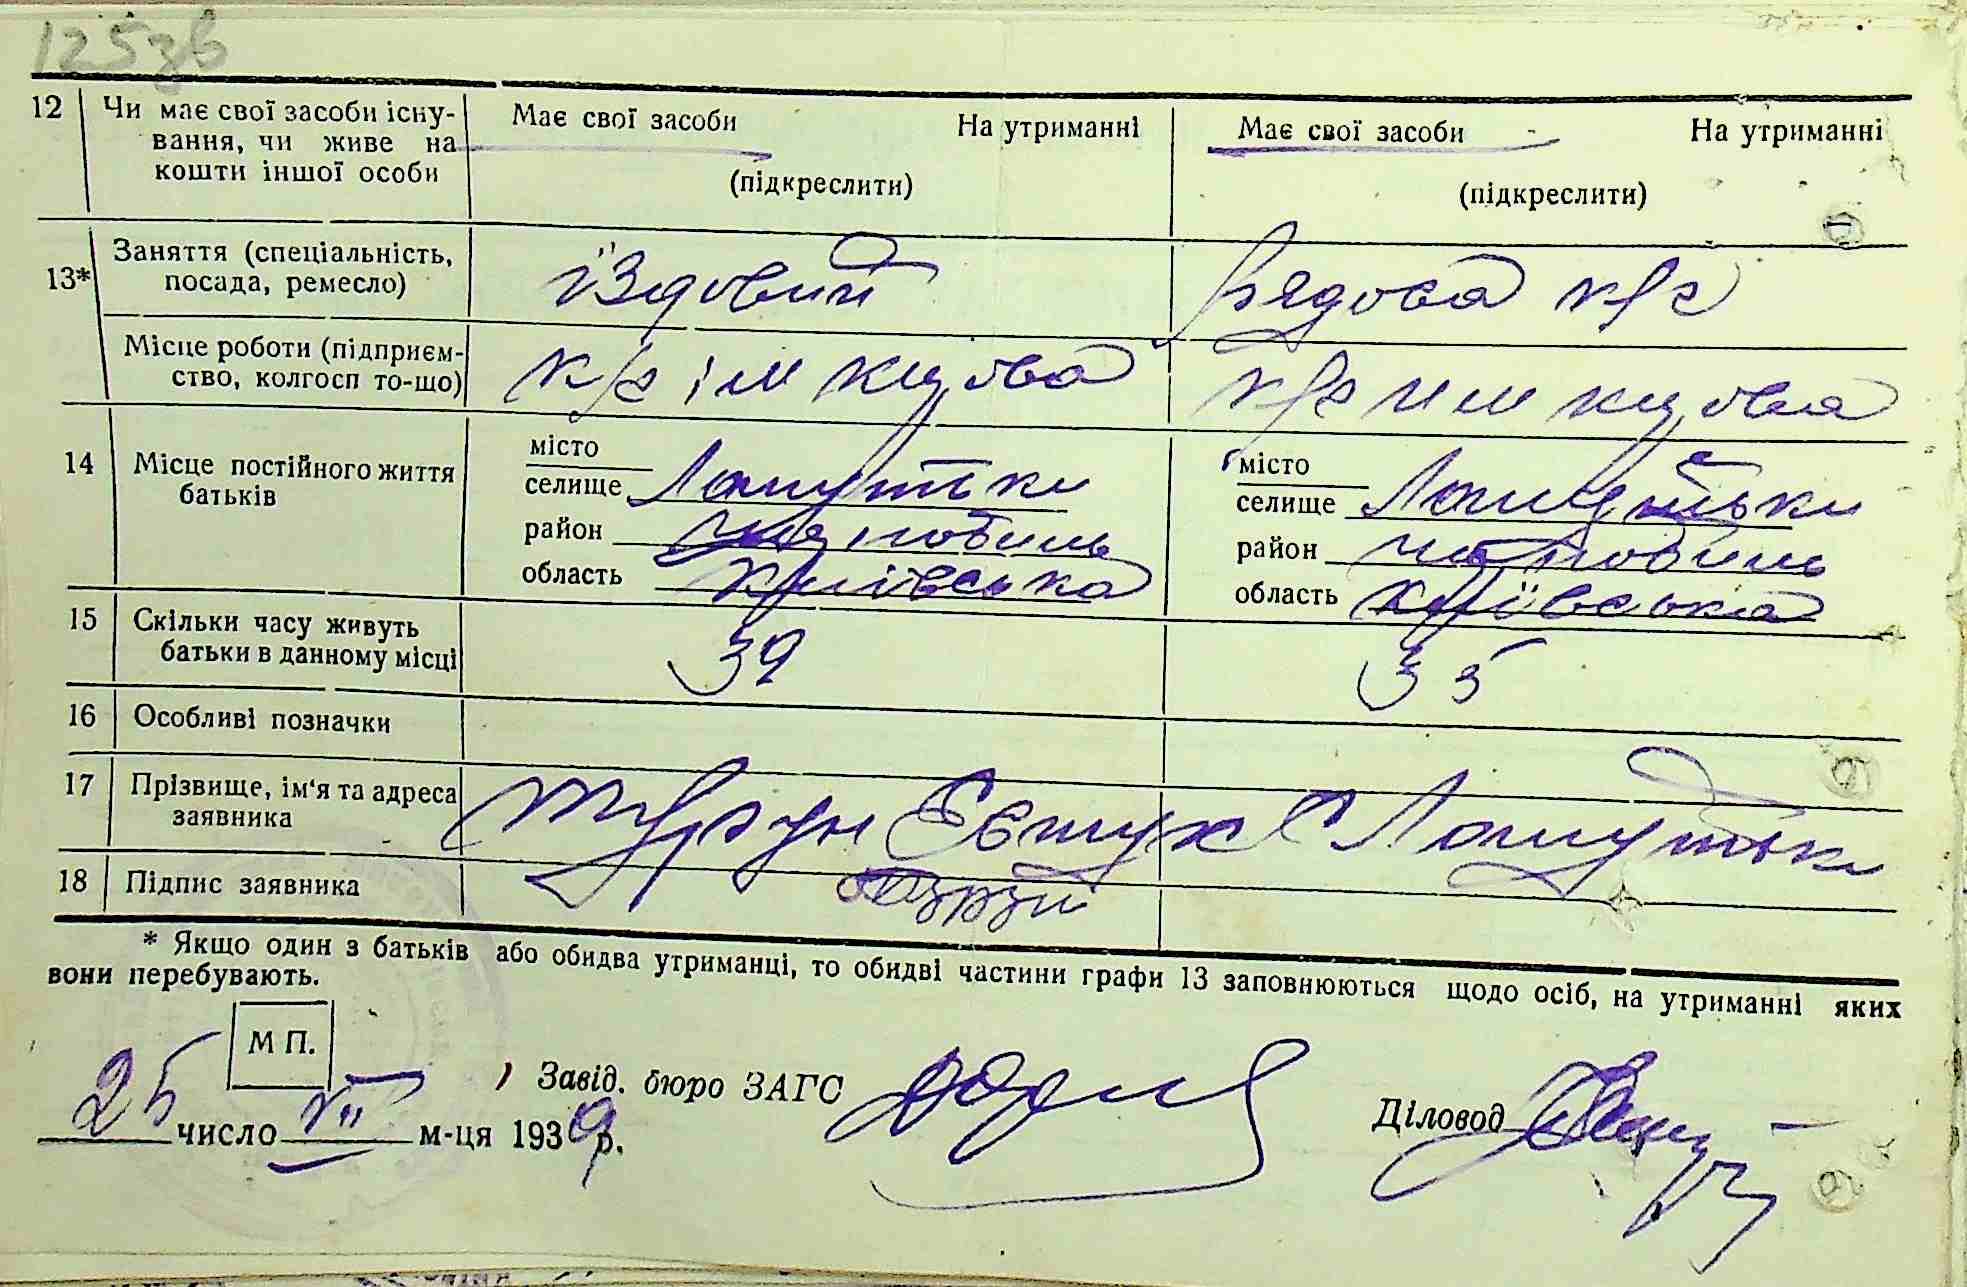 125зв
12 Чи має свої засоби існу- Має свої засоби На утриманні Має свої засоби На утриманні
вання, чи живе на
кошти іншої особи (підкреслити) (підкреслити)
13* Заняття (спеціальність, їздовий Рядова к/г
посада, ремесло)
Місце роботи (підприєм- к/г ім к/г им
ство, колгосп то-що)
14 Місце постійного життя місто місто
батьків селище Лопутьки селище Лопутьки
район район
область Київська область Київська
15 Скільки часу живуть 39 35
батьки в данному місці
16 Особливі позначки
17 Прізвище, ім'я та адреса Турзун Євтух С Лопутьки
заявника
18 Підпис заявника
* Якщо один з батьків або обидва утриманці, то обидві частини графи 13 заповнюються щодо осіб, на утриманні яких
вони перебувають.
М П.
Завід. бюро ЗАГС
25 число VII м-ця 1939 р. Діловод